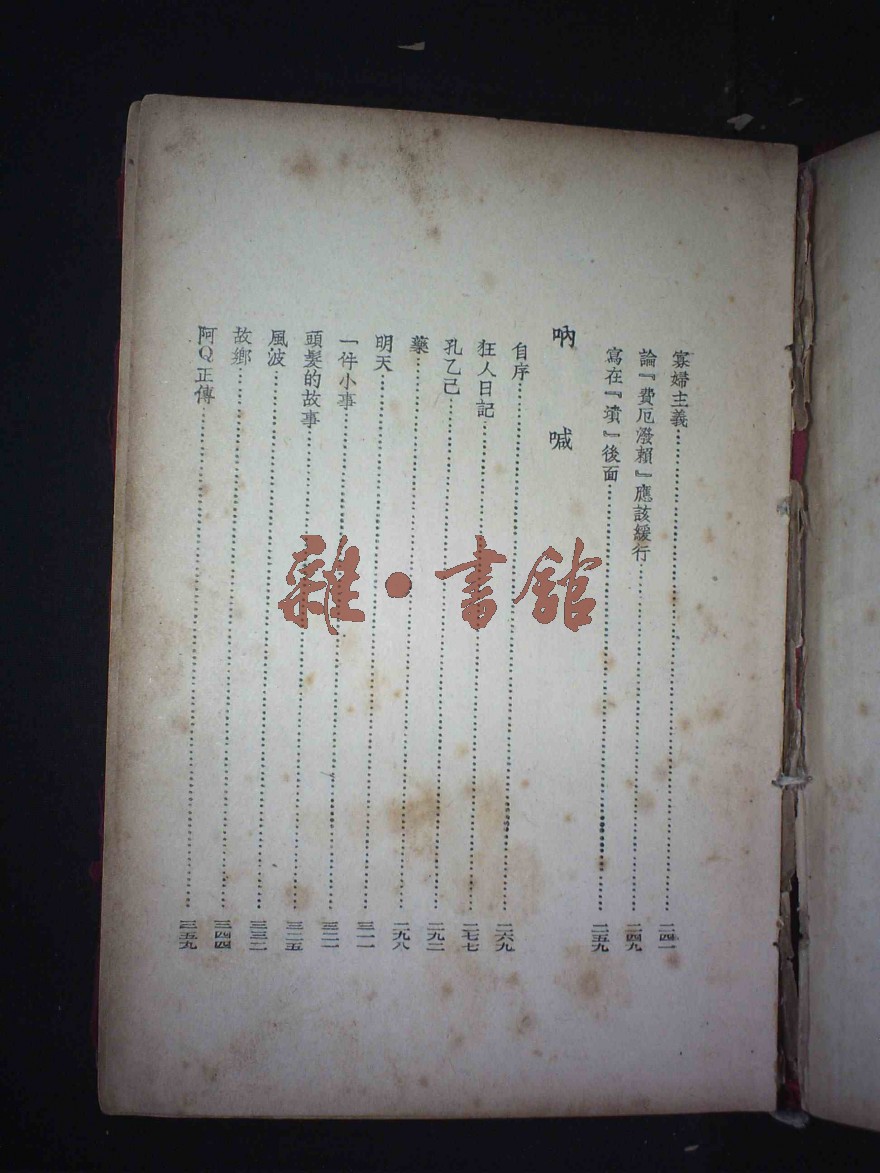 寡婦主義 二四一
論『費厄潑賴』應該緩行 二四九
寫在『墳』後面 二五九
吶喊
自序 二六九
狂人日記 二七七
孔乙己 二九二
藥 二九八
明天 三一一
一件小事 三二一
頭髮的故事 三二五
風波 三三二
故鄉 三四四
阿Q正傳 三五九
雜·書館